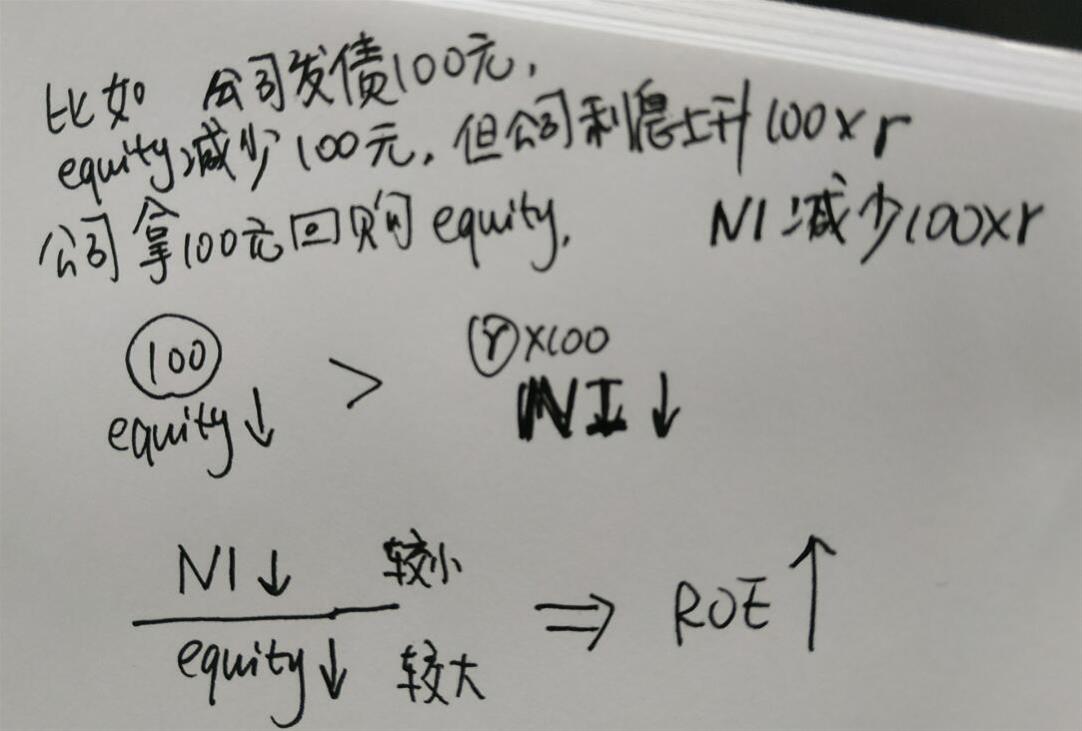 比如 公司发债100元,
equity减少100元, 但公司利息上升100×r
公司拿100元回购equity, NI减少100×r
100 > r×100
equity↓ NI↓
NI↓ 较小
equity↓ 较大 ⇒ ROE↑